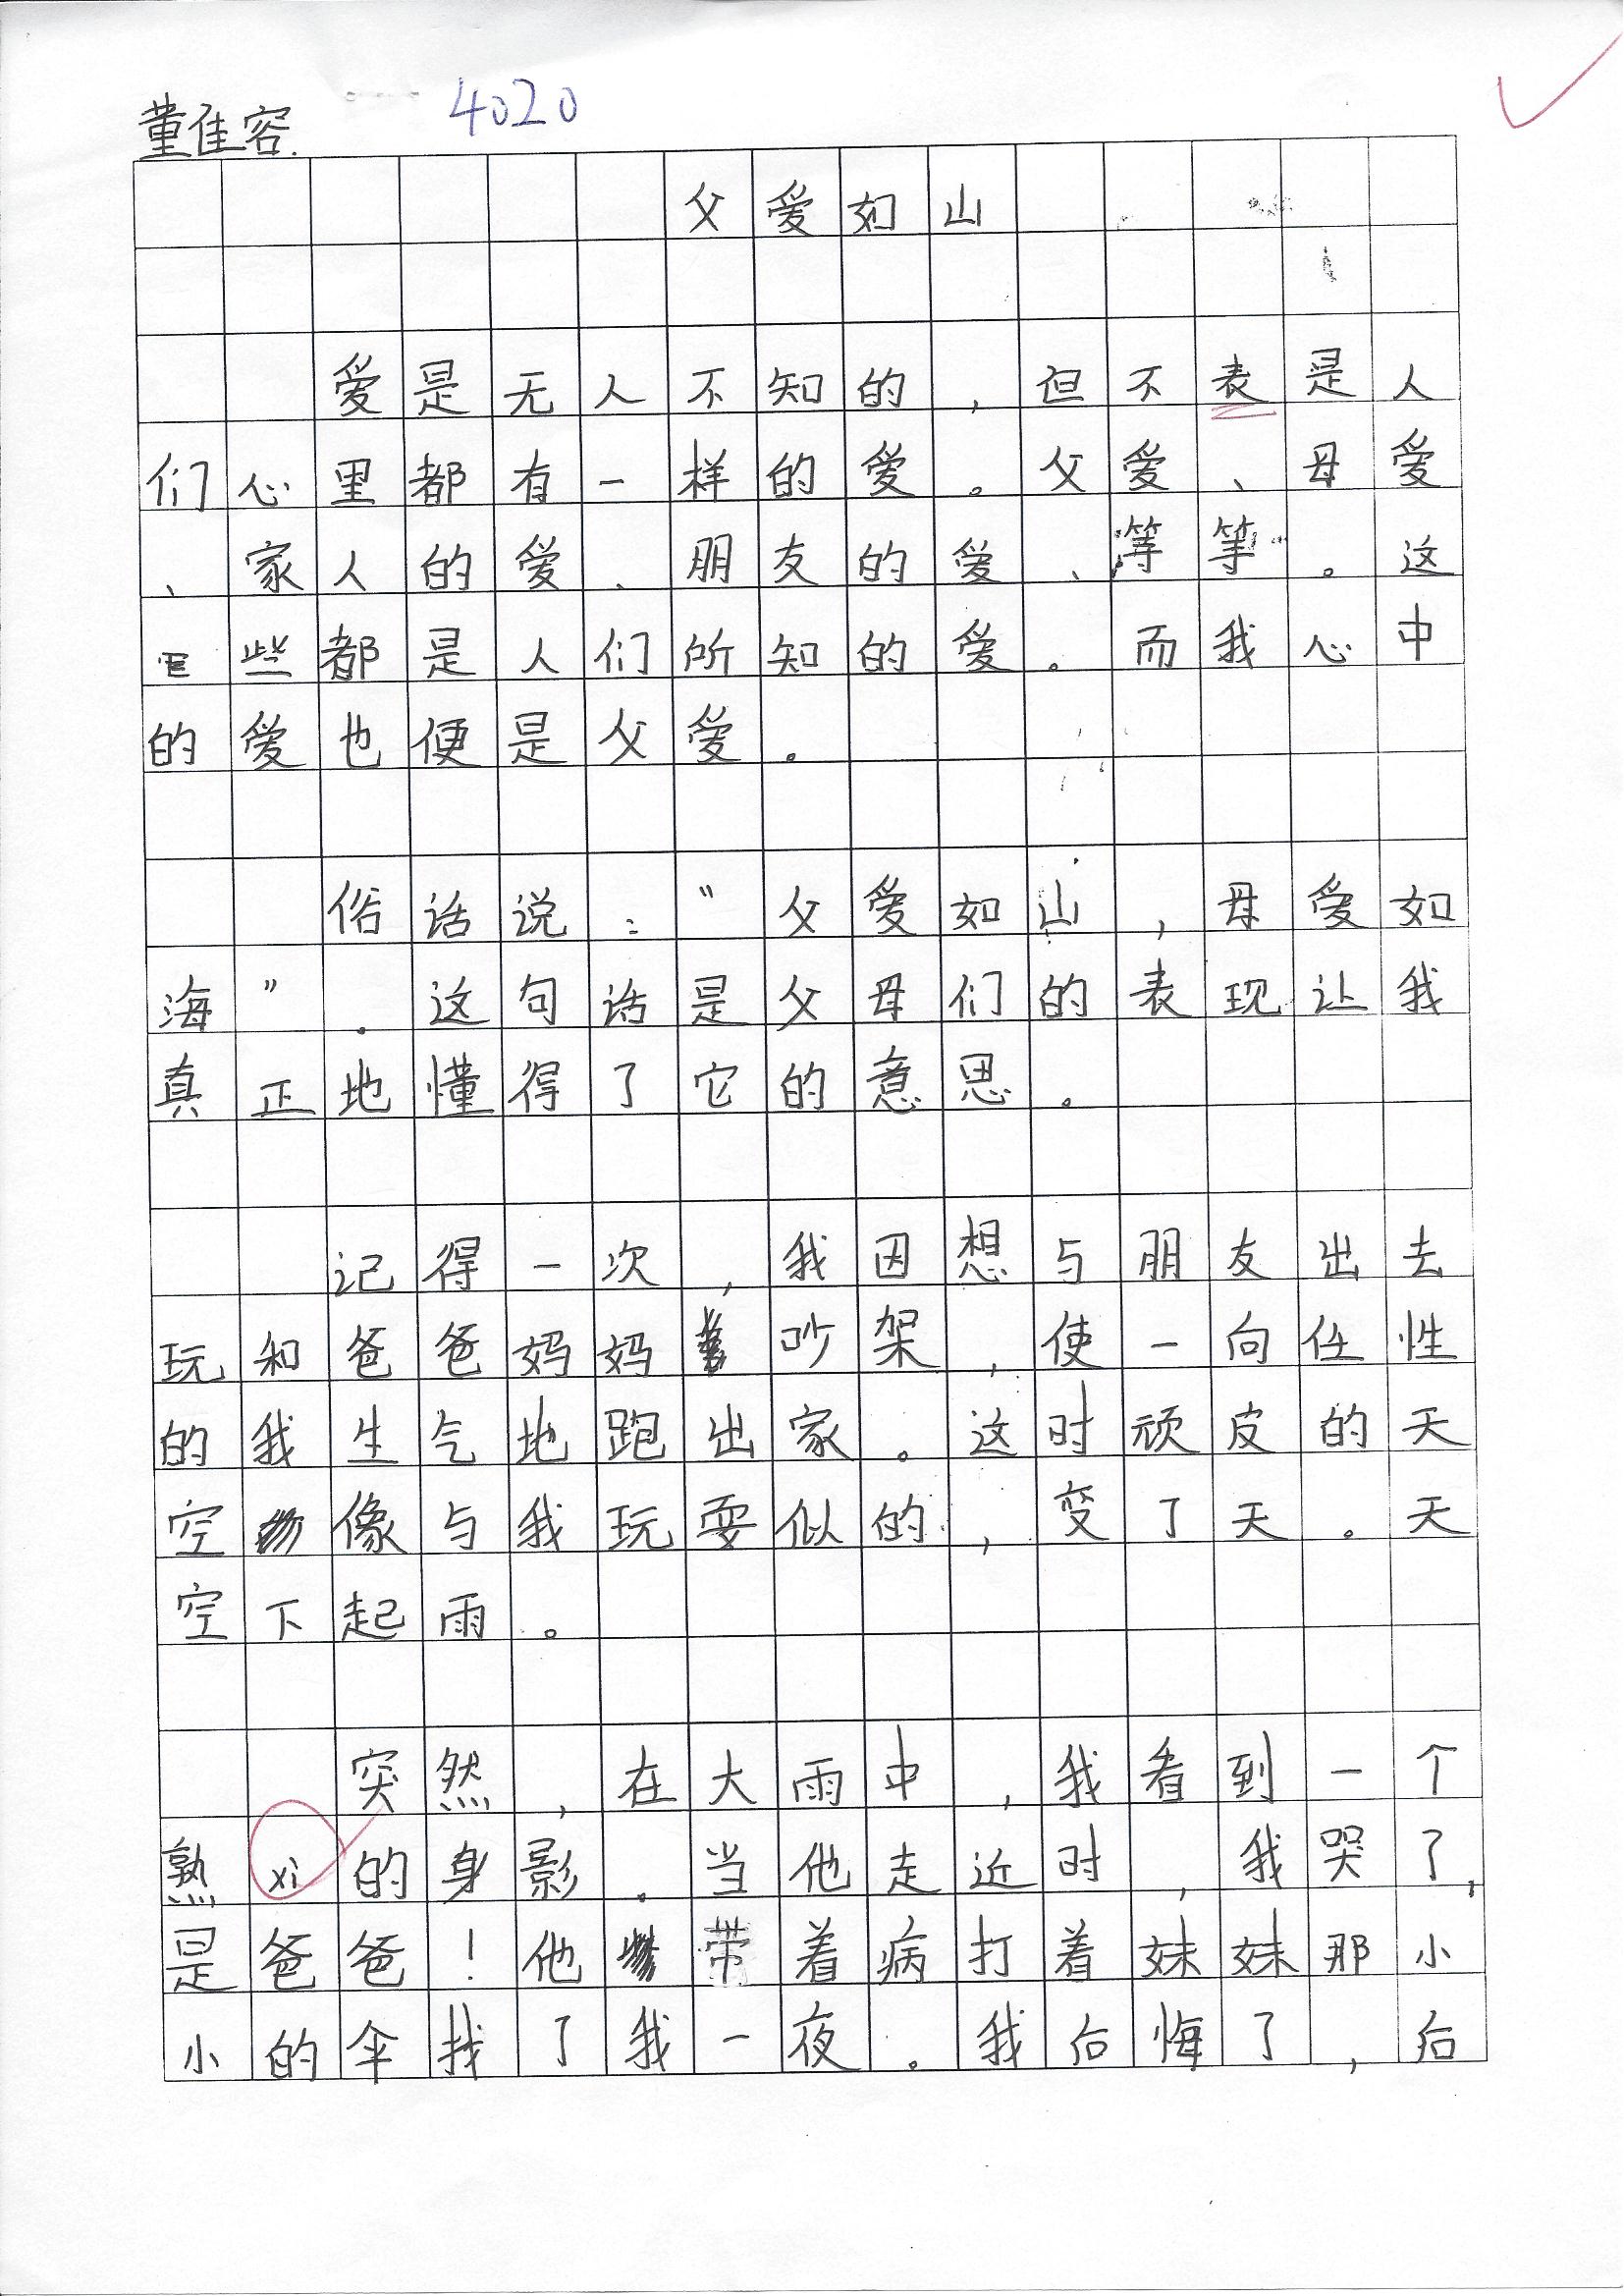 董佳容.
4020
父爱如山
爱是无人不知的，但不表是人
们心里都有一样的爱。父爱、母爱
、家人的爱、朋友的爱、等等。这
些都是人们所知的爱。而我心中
的爱也便是父爱。
俗话说：“父爱如山，母爱如
海”。这句话是父母们的表现让我
真正地懂得了它的意思。
记得一次，我因想与朋友出去
玩和爸爸妈妈吵架，使一向任性
的我生气地跑出家。这时顽皮的天
空像与我玩耍似的，变了天。天
空下起雨。
突然，在大雨中，我看到一个
熟xi的身影。当他走近时，我哭了，
是爸爸！他带着病打着妹妹那小
小的伞找了我一夜。我后悔了，后